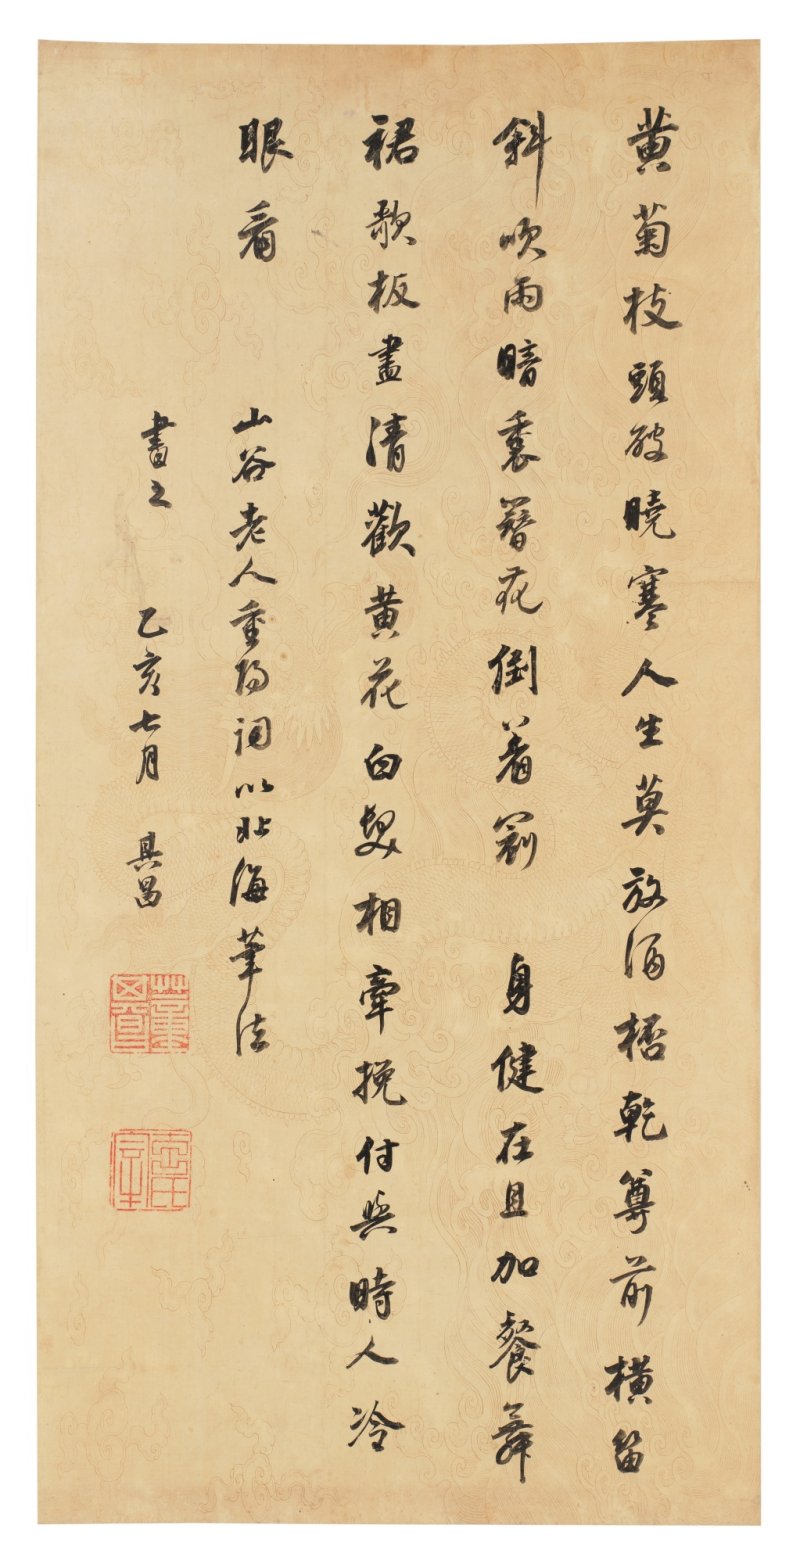 黄菊枝頭破曉寒人生莫放酒桮乾尊前橫笛
斜吹雨暗裏簪花倒着冠 身健在且加餐舞
裙歌板盡清歡黄花白髮相牽挽付與時人冷
眼看 山谷老人重陽詞以北海筆法
書之 乙亥七月 其昌